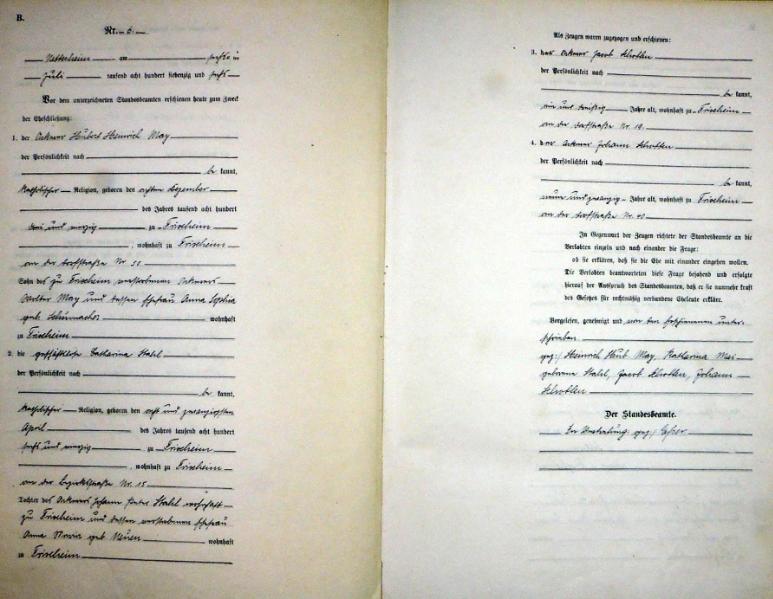 B.
Nr. 6.
am
Juli tausend acht hundert siebenzig und sechs
Vor dem unterzeichneten Standesbeamten erschienen heute zum Zweck
der Eheschließung:
1. der Ackerer Hubert Heinrich May
der Persönlichkeit nach
be kannt,
katholischer Religion, geboren den ersten Dezember
des Jahres tausend acht hundert
drei und vierzig zu Frixheim
, wohnhaft zu Frixheim
an der Dorfstraße Nr. 51
Sohn des zu Frixheim verstorbenen Ackerers
May und dessen Ehefrau Anna Sophia
geb. Schumacher wohnhaft
zu Frixheim
2. die geschäftslose Catharina Stahl
der Persönlichkeit nach
be kannt,
katholischer Religion, geboren den acht und zwanzigsten
April des Jahres tausend acht hundert
sechs und vierzig zu Frixheim
, wohnhaft zu Frixheim
an der Bezirksstraße Nr. 15
Tochter des Ackerers Johann Peter Stahl wohnhaft
zu Frixheim und dessen verstorbenen Ehefrau
Anna Maria geb. Neuen wohnhaft
zu Frixheim
Als Zeugen waren zugezogen und erschienen:
3. der Ackerer Jacob
der Persönlichkeit nach
be kannt,
ein und dreißig Jahre alt, wohnhaft zu Frixheim
an der Dorfstraße Nr. 19.
4. der Ackerer Johann
der Persönlichkeit nach
be kannt,
neun und zwanzig Jahre alt, wohnhaft zu Frixheim
an der Dorfstraße Nr.
In Gegenwart der Zeugen richtete der Standesbeamte an die
Verlobten einzeln und nach einander die Frage:
ob sie erklären, daß sie die Ehe mit einander eingehen wollen.
Die Verlobten beantworteten diese Frage bejahend und erfolgte
hierauf der Ausspruch des Standesbeamten, daß er sie nunmehr kraft
des Gesetzes für rechtmäßig verbundene Eheleute erkläre.
Vorgelesen, genehmigt und von den Erschienenen unter-
schrieben
gez: Heinrich Hub. May, Katharina Mai
geborene Stahl, Jacob, Johann
Der Standesbeamte.
In Vertretung gez: